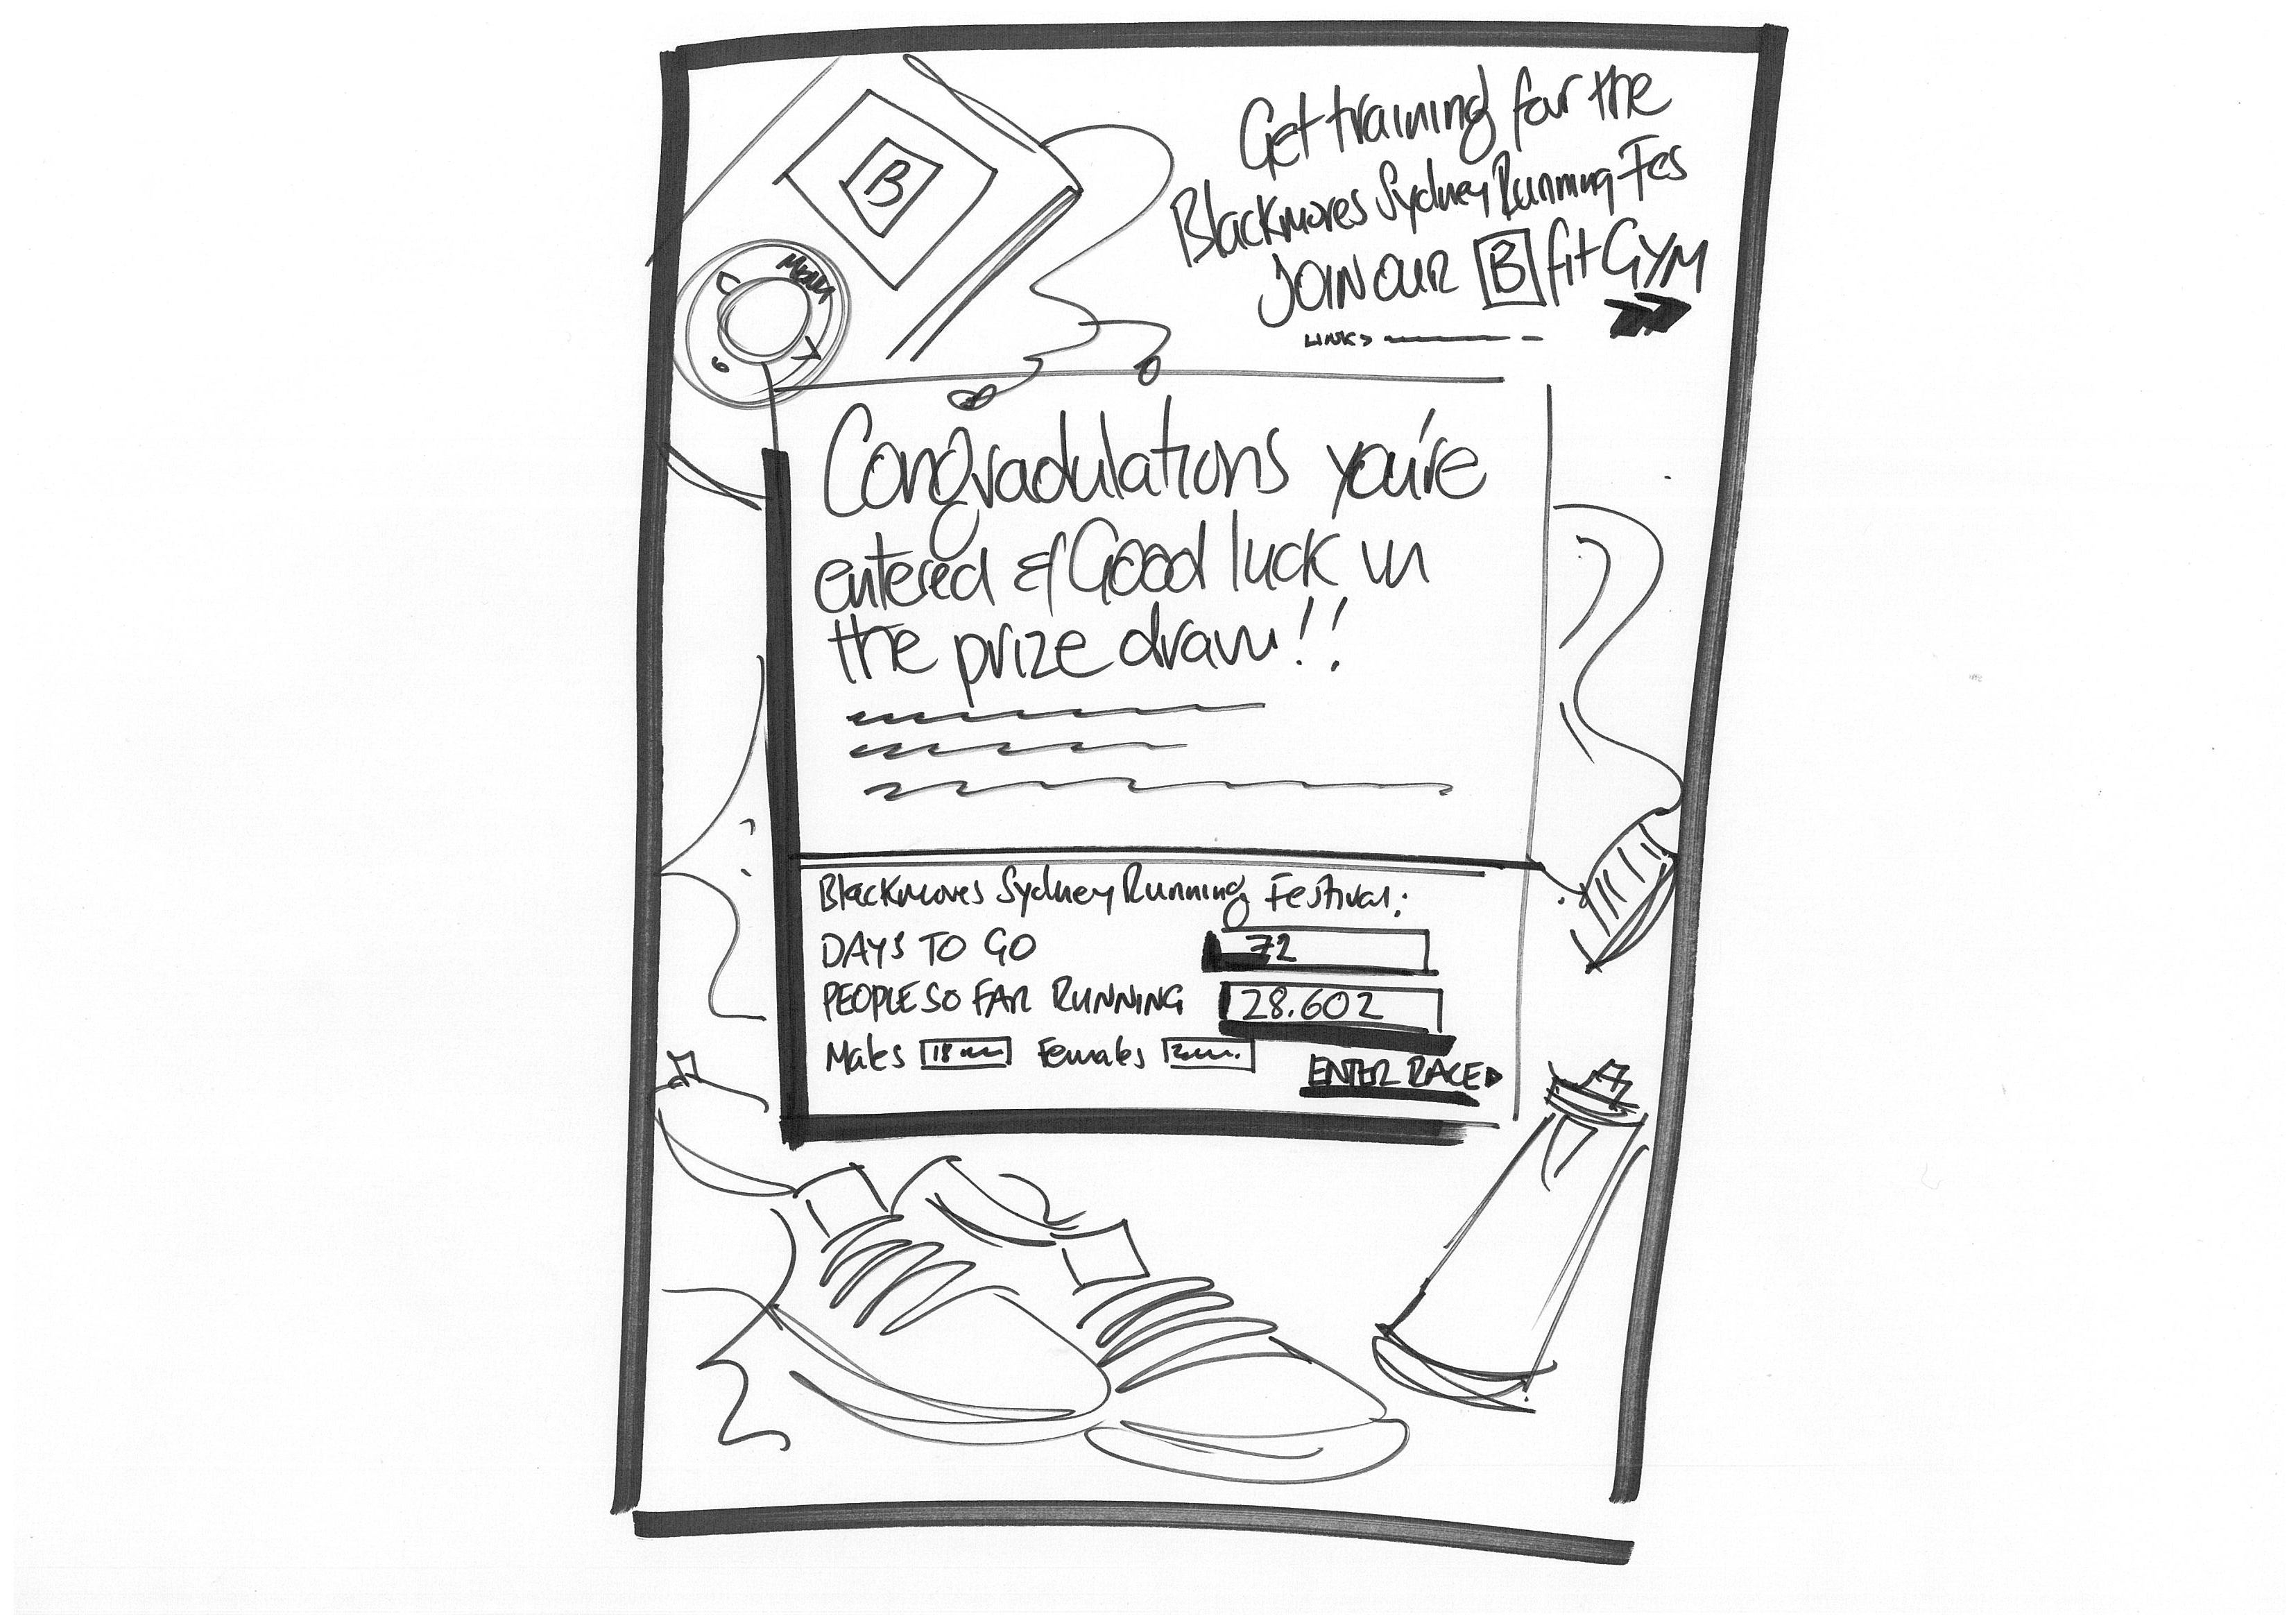 B
Get training for the
Blackmores Sydney Running Fes
JOIN OUR B fit GYM
LINK >
Congradulations you're
entered & Good luck in
the prize draw!!
Blackmores Sydney Running Festival:
DAYS TO GO 72
PEOPLE SO FAR RUNNING 28.602
Males 18 Females
ENTER RACE